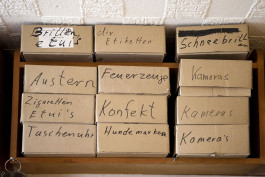 Brillen
Etui's
Etiketten
Schneebrill
Austern
Feuerzeuge
Kameras
Zigaretten
Etui's
Konfekt
Kameras
Taschenuhr
Hundemarken
Kamera's